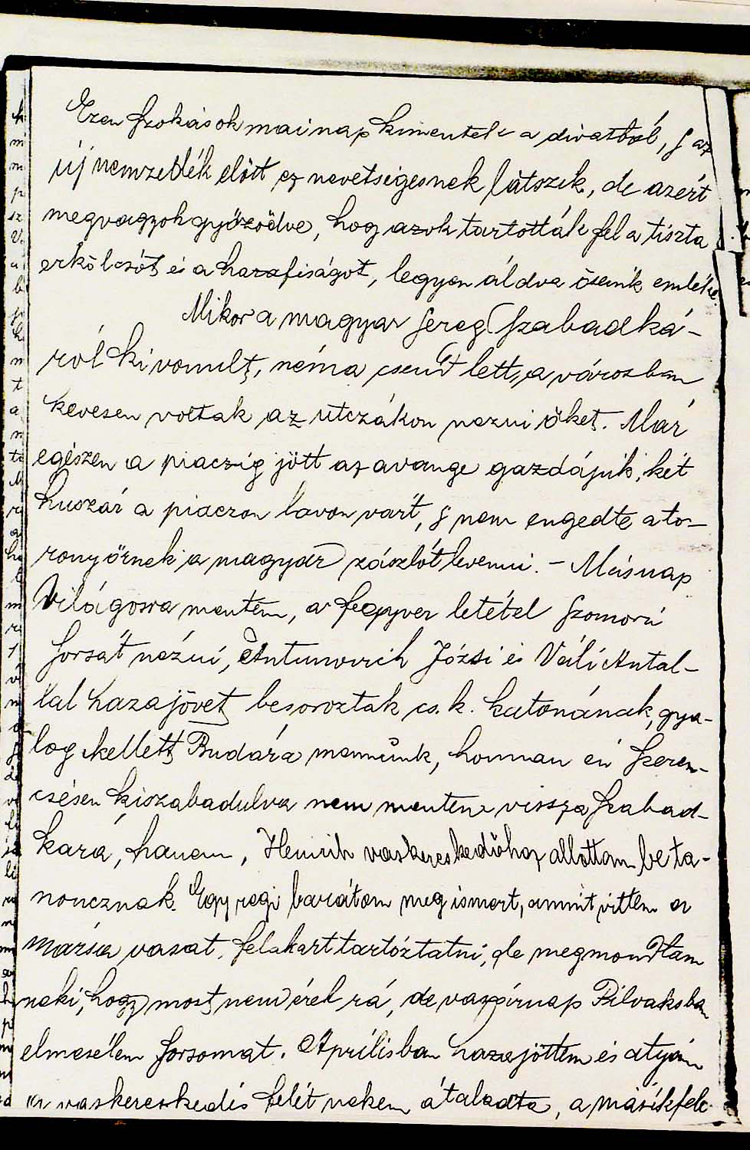 Ezen szokások mai nap kimentek a divatból, s az
új nemzedék előtt ez nevetségesnek látszik, de azért
megvagyok győződve, hogy azok tartották fel a tiszta
erkölcsöt és a hazafiságot, legyen áldva őseink emléke
Mikor a magyar sereg Szabadká-
ról kivonult, néma csend lett, a városban
kevesen voltak az utczákon nézni őket. Már
egészen a piaczig jött az avange gazdájuk, két
huszár a piaczon lovon várt, s nem engedte a to-
ronyőrnek a magyar zászlót levenni. – Másnap
Világosra mentem, a fegyver letétel szomorú
sorsát nézni, Antunovich Józsi és Váli Antal-
lal hazajövet besoroztak cs. k. katonának, gya-
log kellett Budára mennünk, honnan én szeren-
csésen kiszabadulva nem mentem vissza Szabad-
kára, hanem, Heinrih vaskereskedőhoz allottam be ta-
noncznak. Egy regi barátom meg ismert, ammit vittem a
vasat, felakart tartóztatni, de megmondtam
neki, hogy most nem érek rá, de vasárnap Pilvaksba
elmesélem sorsomat. Áprilisban hazajöttem és atyám
a vaskereskedés felét nekem átaladta, a másik fele